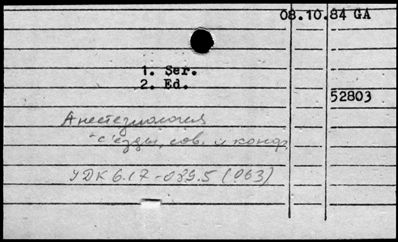 08.10.84 GA
1. Ser.
2. Ed.
52803
Анестезиология
съезды, сов. и конф.
УДК 617-089.5 (063)